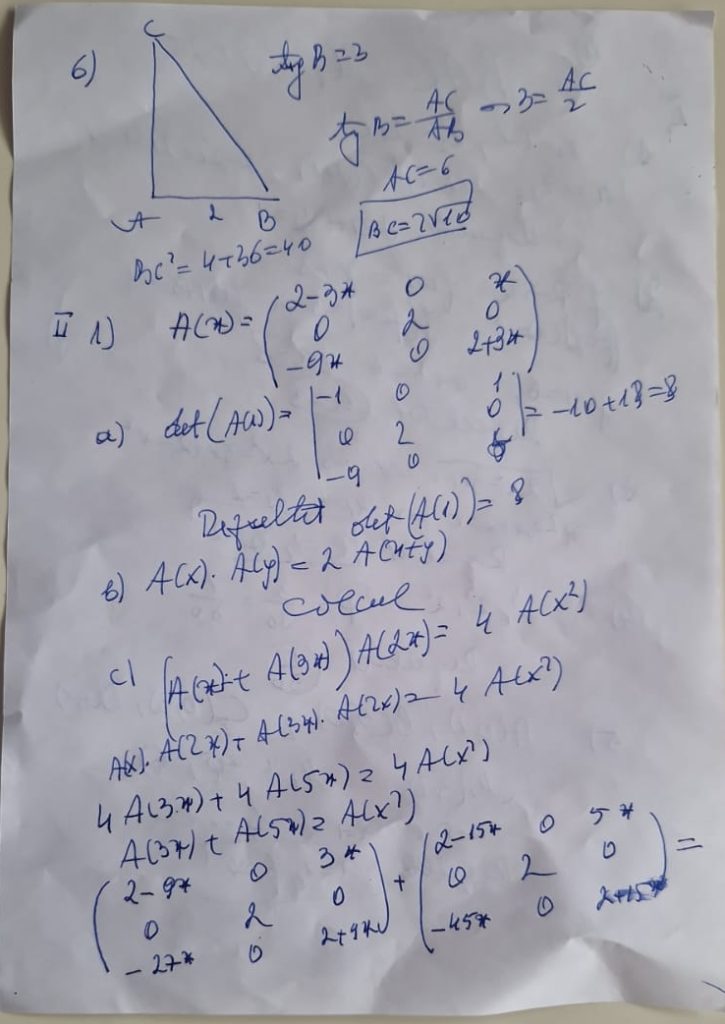 6)
C
A 2 B
tg B = 3
tg B = AC/AB => 3 = AC/2
AC = 6
BC = 2√10
BC² = 4+36 = 40
II 1) A(x) = ( 2-3x 0 x
0 2 0
-9x 0 2+3x )
a) det(A(1)) = | -1 0 1
0 2 0
-9 0 5 | = -10+18 = 8
det(A(1)) = 8
b) A(x). A(y) = 2 A(x+y)
calcul
c) (A(x) + A(3x)) A(2x) = 4 A(x²)
A(x). A(2x) + A(3x). A(2x) = 4 A(x²)
4 A(3x) + 4 A(5x) = 4 A(x²)
A(3x) + A(5x) = A(x²)
( 2-9x 0 3x ) + ( 2-15x 0 5x ) =
0 2 0 0 2 0
-27x 0 2+9x -45x 0 2+15x